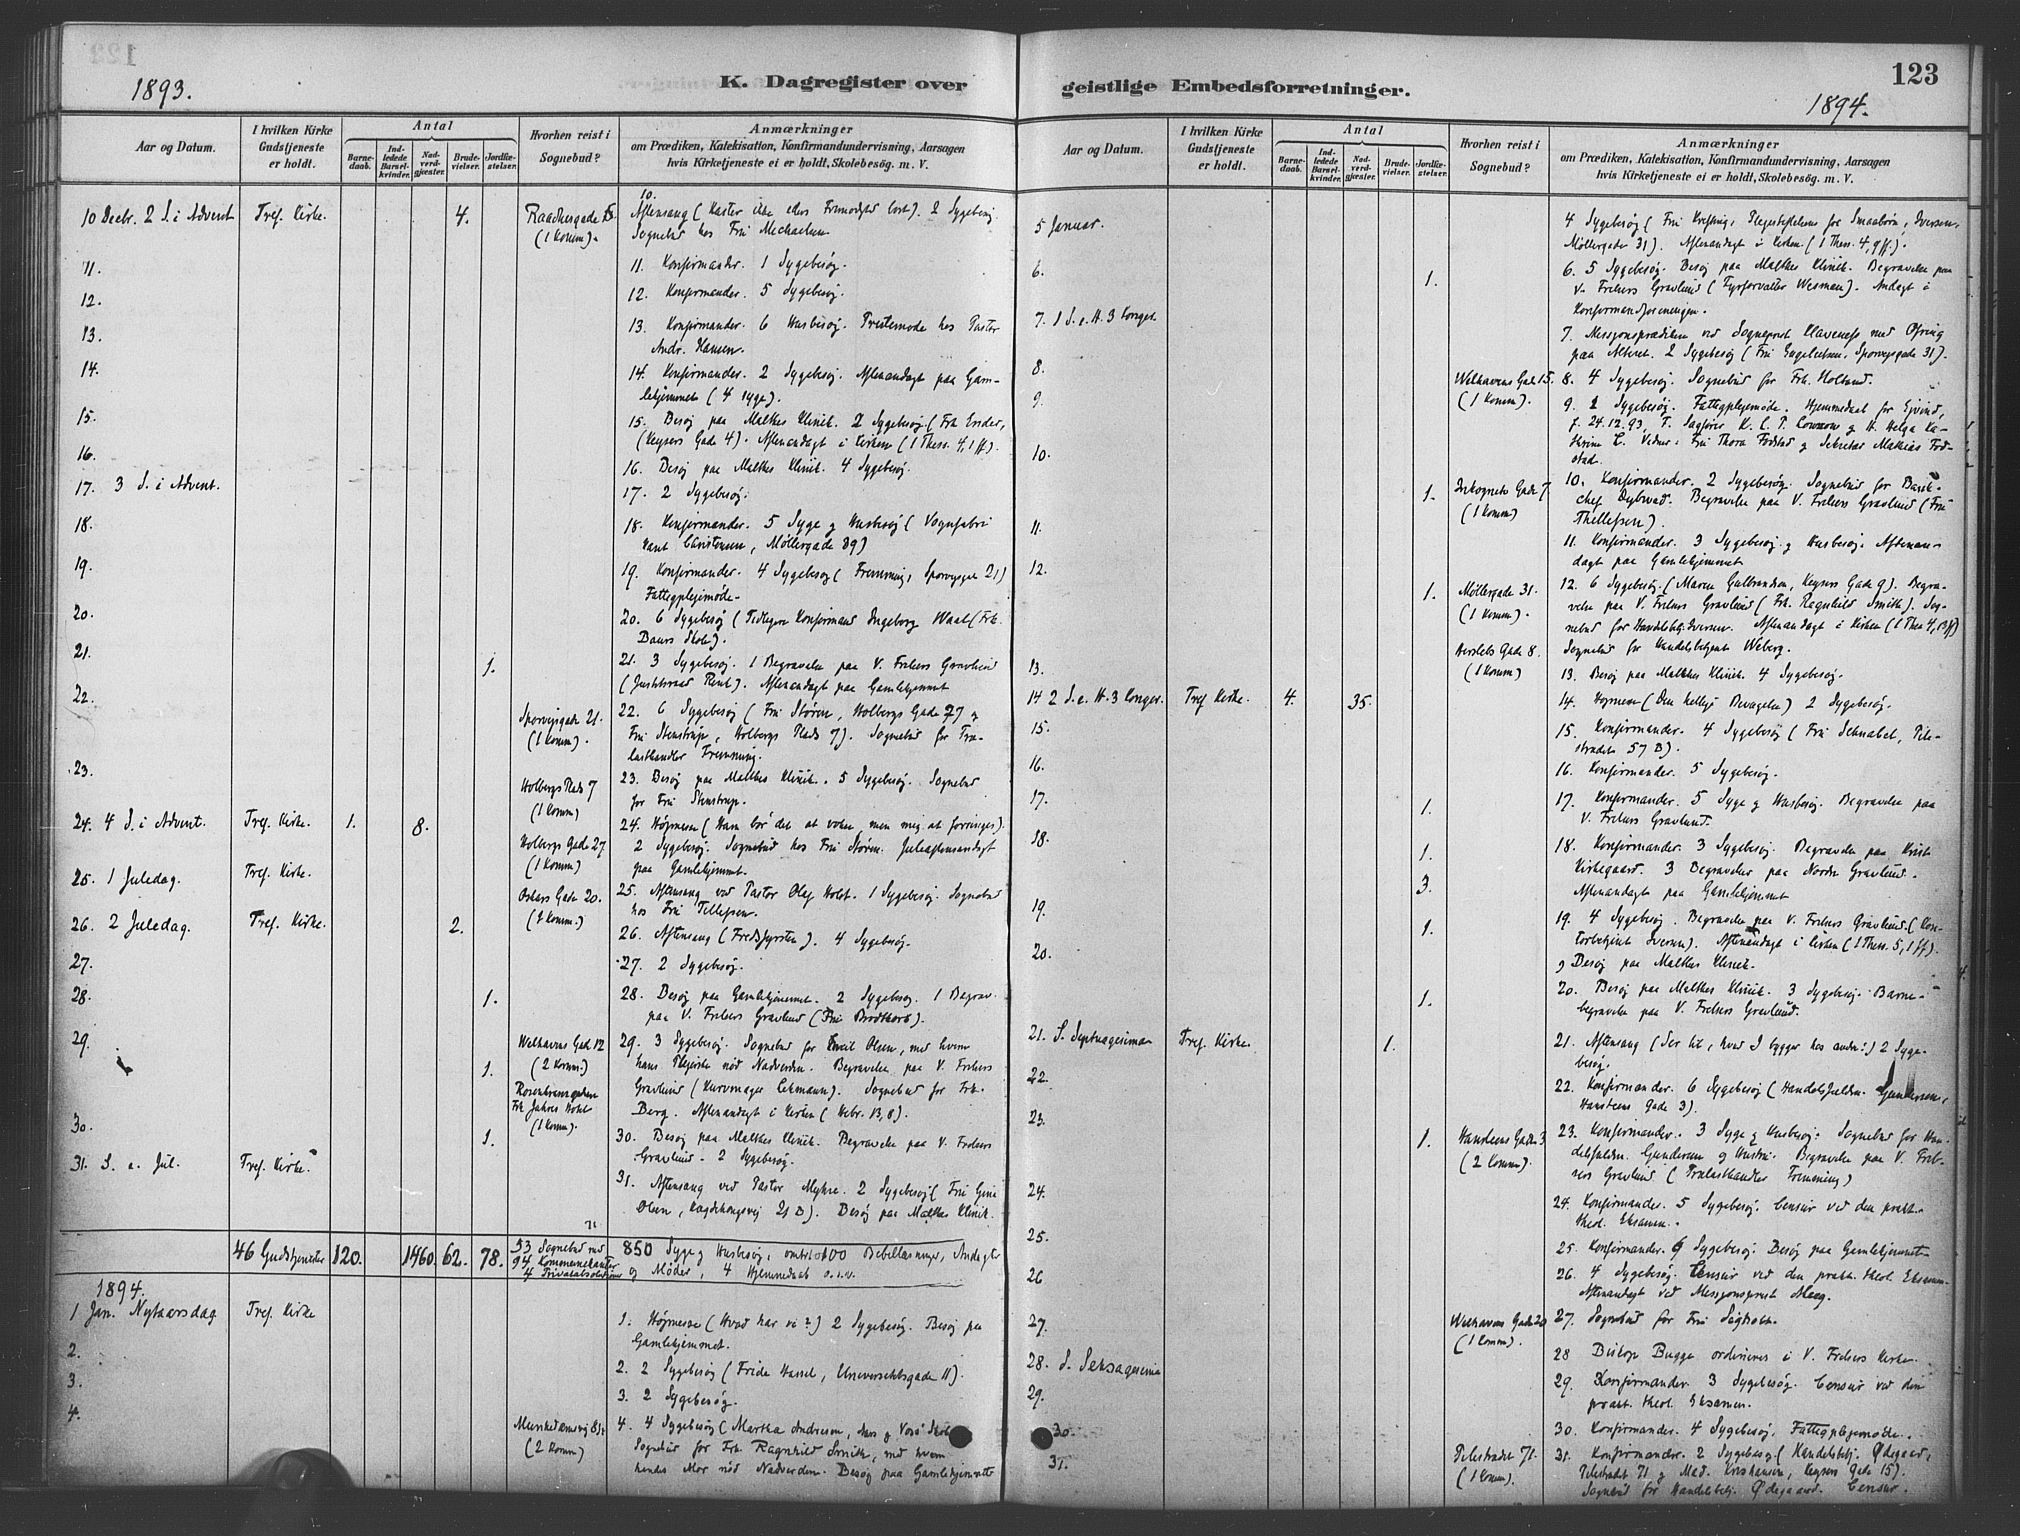 1893.
K. Dagregister over
Aar og Datum.
I hvilken Kirke Gudstjeneste er holdt.
Antal
Barnedaab.
Indledede Barselkvinder.
Nadverdgjæster.
Brudevielser.
Jordfæstelser.
Hvorhen reist i Sognebud?
Anmærkninger
om Prædiken, Katekisation, Konfirmandundervisning, Aarsagen
hvis Kirketjeneste ei er holdt, Skolebesøg. m. V.
10 Decbr. 2 S. i Advent
Tref. Kirke.
4.
(1 Komm).
10.
Aftensang (Kaster ikke eders Frimodighed bort). 2 Sygebesøg
Sognebud hos Fru Michaelsen
11.
11. Konfirmander. 1 Sygebesøg.
12.
12. Konfirmander. 5 Sygebesøg.
13.
13. Konfirmander. 6 Husbesøg. Prestemøde hos Pastor
Andr. Hansen.
14.
14. Konfirmander. 2 Sygebesøg. Aftenandagt paa Gam-
lehjemmet (4 syge).
15.
15. Besøg paa Malthes Klinik. 2 Sygebesøg
(Keysers Gade 4). Aftenandagt i Kirken (1 Thess. 4, 1 ff).
16.
16. Besøg paa Malthes Klinik. 4 Sygebesøg.
17. 3 S. i Advent.
17. 2 Sygebesøg.
18.
18. Konfirmander. 5 Syge og Husbesøg (Vognfabri
kant Christensen, Møllergade 89)
19.
19. Konfirmander. 4 Sygebesøg (Fremming, Sporveisgade 21)
Fattigplejemøde.
20.
20. 6 Sygebesøg (Tidligere Konfirmand Ingeborg Waal (Frk.
Bauers Skole).
21.
1.
21. 3 Sygebesøg. 1 Begravelse paa V. Frelsers Gravlund
. Aftenandagt paa Gamlehjemmet
22.
Sporveisgade 21.
(1 Komm).
22. 6 Sygebesøg (Fru Støren, Holbergs Gade 27 og
Fru Stenstrup, Holbergs Plads 7). Sognebud for Træ-
lasthandler Fremming.
23.
Holbergs Plads 7
(1 Komm)
23. Besøg paa Malthes Klinik. 5 Sygebesøg. Sognebud
for Fru Stenstrup.
24. 4 S. i Advent.
Tref. Kirke.
1.
8.
Holbergs Gade 27
(1 Komm)
24. Højmesse (Ham bør det at vokse, men mig at forringes).
2 Sygebesøg. Sognebud hos Fru Støren. Juleaftensandagt
paa Gamlehjemmet.
25. 1 Juledag.
Tref. Kirke.
Oskars Gade 20.
25. Aftensang ved Pastor Olaf Holst. 1 Sygebesøg. Sognebud
hos Fru Tellefsen.
26. 2 Juledag.
Tref. Kirke.
2.
26. Aftensang (Fredsfyrsten). 4 Sygebesøg.
27.
27. 2 Sygebesøg.
28.
1.
28. Besøg paa Gamlehjemmet. 2 Sygebesøg. 1 Begrav.
paa V. Frelsers Gravlund (Fru Brodtkorb).
29.
1.
Welhavens Gad 12
(2 Komm.)
(1 Komm).
29. 3 Sygebesøg. Sognebud for Emil Olsen, med hvem
hans Plejerske nød Nadverden. Begravelse paa V. Frelsers
Gravlund (Kurvmager Lehmann). Sognebud for Frk.
Berg. Aftenandagt i Kirken (Hebr. 13, 8).
30.
1.
30. Besøg paa Malthes Klinik. Begravelse paa V. Frelsers
Gravlund. 2 Sygebesøg.
31. S. e. Jul.
Tref. Kirke.
31. Aftensang ved Pastor Myhre. 2 Sygebesøg (Fru Gina
Olsen, 21 B). Besøg paa Malthes Klinik.
46 Gudstjenester
120.
1460.
62.
78.
53 Sognebud med
94 Kommunikanter
4 Privatabsolutioner
850 Syge og Husbesøg, omtr. 100 Bibellæsninger, Andagter
og Møder, 4 Hjemmedaab o.s.v.
1894.
1 Jan. Nytaarsdag
Tref. Kirke
1. Højmesse (Hvad har vi?) 2 Sygebesøg. Besøg paa
Gamlehjemmet.
2.
2. 2 Sygebesøg (Frida Hassel, Universitetsgade 11).
3.
3. 2 Sygebesøg.
4.
(2 Komm)
4. 4 Sygebesøg (Martha Andresen,
Sognebud for Frk. Ragnhild Smith, med hvem
hendes Mor nød Nadverden. Besøg paa Gamlehjemmet
geistlige Embedsforretninger.
123
1894.
Aar og Datum.
I hvilken Kirke Gudstjeneste er holdt.
Antal
Barnedaab.
Indledede Barselkvinder.
Nadverdgjæster.
Brudevielser.
Jordfæstelser.
Hvorhen reist i Sognebud?
Anmærkninger
om Prædiken, Katekisation, Konfirmandundervisning, Aarsagen
hvis Kirketjeneste ei er holdt, Skolebesøg. m. V.
5 Januar.
4 Sygebesøg (Fru Krefting, Plejestiftelsen for Smaabørn, Iversen,
Møllergade 31). Aftenandagt i Kirken (1 Thess. 4, 9 ff).
6.
1.
6. 5 Sygebesøg. Besøg paa Malthes Klinik. Begravelse paa
V. Frelsers Gravlund (Fyrforvalter Wesman). Andagt i
Konfirmandforeningen.
7. 1 S. e. H. 3 Konger.
7. Messjonsprædiken ved Sogneprest Klaveness med Ofring
paa Alteret. 2 Sygebesøg (Fru Engelsen, Sporveisgade 31).
8.
Welhavens Gade 15.
(1 Komm).
8. 4 Sygebesøg. Sognebud for Frk. Holland.
9.
9. 2 Sygebesøg. Fattigplejemøde. Hjemmedaab for Ejvind,
f. 24.12.93. H. Helga Ka-
thrine L. Vidner: Fru Thora Fodstad og Sekretær Mathias Fod-
stad.
10.
1.
Inkognito Gade 7.
(1 Komm)
10. Konfirmander. 2 Sygebesøg. Sognebud for Bank-
chef Dybwad. Begravelse paa V. Frelsers Gravlund (Fru
Thellefsen).
11.
11. Konfirmander. 3 Sygebesøg og Husbesøg. Aftenan-
dagt paa Gamlehjemmet
12.
1.
Møllergade 31.
(1 Komm).
Herslebs Gade 8.
(1 Komm)
12. 6 Sygebesøg (Maren Gulbrandsen, Keysers Gade 9). Begra-
velse paa V. Frelsers Gravlund (Frk. Ragnhild Smith). Sog-
nebud for Handelsbetj. Iversen. Aftenandagt i Kirken (1 Thess 4, 13 ff)
Sognebud for Handelsbetjent Weberg.
13.
13. Besøg paa Malthes Klinik. 4 Sygebesøg.
14 2 S. e. H. 3 Konger.
Tref Kirke.
4.
35.
14. Højmesse (Den hellige Bevægelse) 2 Sygebesøg.
15.
15. Konfirmander. 4 Sygebesøg (Fru Schnabel, Pile-
strædet 57 B).
16.
16. Konfirmander. 5 Sygebesøg.
17.
1.
17. Konfirmander. 5 Syge og Husbesøg. Begravelse paa
V. Frelsers Gravlund.
18.
1.
3.
18. Konfirmander. 3 Sygebesøg. Begravelse paa Krist
Kirkegaard. 3 Begravelser paa Nordre Gravlund.
Aftenandagt paa Gamlehjemmet
19.
1.
19. 4 Sygebesøg. Begravelse paa V. Frelsers Gravlund. (Kon-
torbetjent Iversen). Aftenandagt i Kirken (1 Thess. 5, 1 ff).
Besøg paa Malthes Klinik.
20.
1.
20. Besøg paa Malthes Klinik. 3 Sygebesøg. Barne-
begravelse paa V. Frelsers Gravlund.
21. S. Septuagesima
Tref. Kirke.
1.
21. Aftensang (Ser til, hvad I bygger hos andre!) 2 Syge-
besøg.
22.
22. Konfirmander. 6 Sygebesøg (Handelsfuldm. Gundersen,
Hansteens Gade 3).
23.
1.
Hansteens Gade 3
(2 Komm).
23. Konfirmander. 3 Syge og Husbesøg. Sognebud for Han-
delsfuldm. Gundersen og Hustru. Begravelse paa V. Frel-
sers Gravlund (Trælasthandler Fremming)
24.
24. Konfirmander. 5 Sygebesøg. Censur ved den prakt.
theol. Eksamen.
25.
25. Konfirmander. 9 Sygebesøg. Besøg paa Gamlehjemmet
26
26. 4 Sygebesøg. Censur ved den prakt. theol. Eksamen.
Aftenandagt ved Messjonsprest Meeg.
27.
Welhavens Gade 20
(1 Komm).
27. Sognebud for Fru Sigholt.
28. S. Seksagesima
28 Biskop Bugge ordinerer i V. Frelsers Kirke.
29.
29. Konfirmander. 3 Sygebesøg. Censur ved den
prakt. theol. Eksamen.
30.
30. Konfirmander. 4 Sygebesøg. Fattigplejemøde.
31.
Pilestrædet 71.
(1 Komm).
31. Konfirmander. 2 Sygebesøg (Handelsbetj. Ødegaard,
Pilestrædet 71 og Mad. Kristiansen, Keysers Gade 15).
Sognebud for Handelsbetj. Ødegaard. Censur.